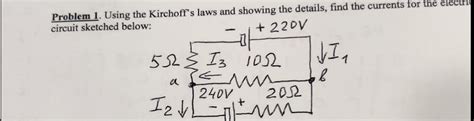 Problem 1. Using the Kirchoff's laws and showing the details, find the currents for the electri
circuit sketched below:
- + 220V
5Ω I3 10Ω ↓I1
a ← b
240V 20Ω
I2↓ - +